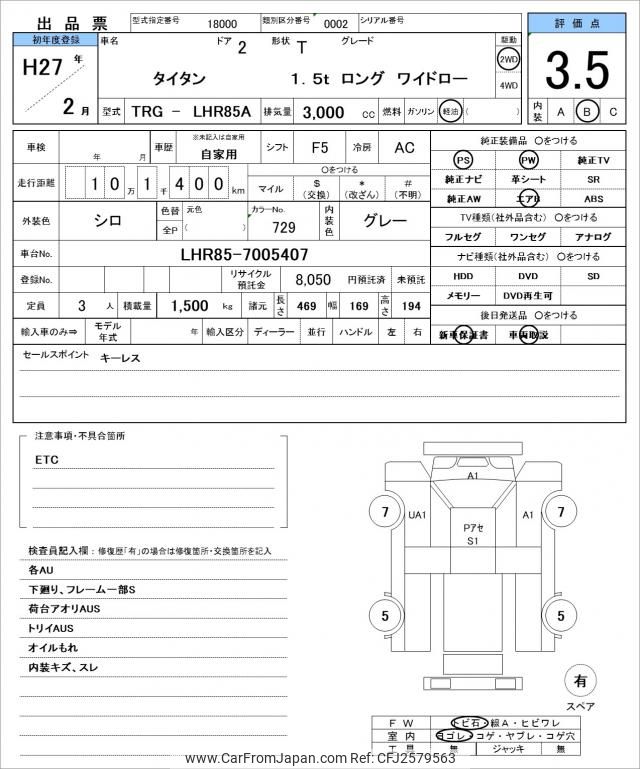 出 品 票 型式指定番号 18000 類別区分番号 0002 シリアル番号
評 価 点
3.5
内装 A B C
初年度登録
H27 年
2 月
車名 ドア 2 形状 T グレード 駆動
タイタン 1.5t ロング ワイドロー
2WD
4WD
型式 TRG - LHR85A 排気量 3,000 CC 燃料 ガソリン 軽油 ( )
車検 年 月 車歴 ※未記入は自家用 自家用 シフト F5 冷房 AC
走行距離 1 0 万 1 千 4 0 0 km
〇をつける
マイル $ (交換) * (改ざん) # (不明)
外装色 シロ 色替 元色 全P ( ) カラーNo. 729 内装色 グレー
車台No. LHR85-7005407
登録No. リサイクル預託金 8,050 円預託済 未預託
定員 3 人 積載量 1,500 kg 諸元 長さ 469 幅 169 高さ 194
輸入車のみ⇒ モデル年式 年 輸入区分 ディーラー 並行 ハンドル 左 右
純正装備品 〇をつける
PS PW 純正TV
純正ナビ 革シート SR
純正AW エアB ABS
TV種類(社外品含む) 〇をつける
フルセグ ワンセグ アナログ
ナビ種類(社外品含む) 〇をつける
HDD DVD SD
メモリー DVD再生可
後日発送品 〇をつける
新車保証書 車両取説
セールスポイント キーレス
注意事項・不具合箇所
ETC
検査員記入欄：修復歴「有」の場合は修復箇所・交換箇所を記入
各AU
下廻り、フレーム一部S
荷台アオリAUS
トリイAUS
オイルもれ
内装キズ、スレ
A1
7 UA1 Pアセ S1 A1 7
5 5
有
スペア
F W トビ石・線A・ヒビワレ
室 内 ヨゴレ・コゲ・ヤブレ・コゲ穴
工 具 無 ジャッキ 無
www.CarFromJapan.com Ref No: CFJ2579563